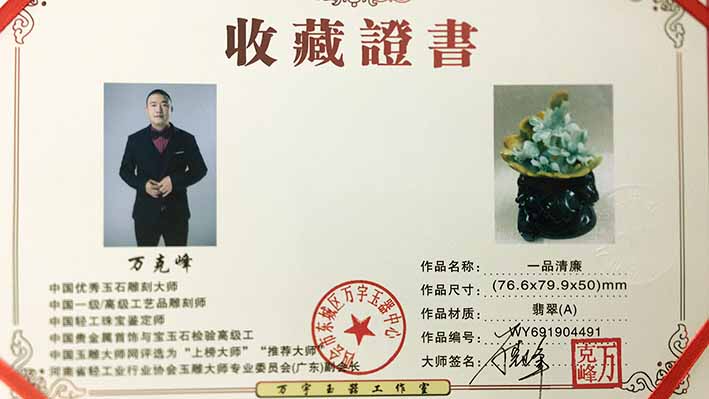 收藏證書
万克峰
中国优秀玉石雕刻大师
中国一级/高级工艺品雕刻师
中国轻工珠宝鉴定师
中国贵金属首饰与宝玉石检验高级工
中国玉雕大师网评选为“上榜大师”“推荐大师”
河南省轻工业行业协会玉雕大师专业委员会(广东)副会长
四会市东城区万宇玉器中心
作品名称: 一品清廉
作品尺寸: (76.6x79.9x50)mm
作品材质: 翡翠(A)
作品编号: WY691904491
大师签名:
万克峰
万宇玉器工作室